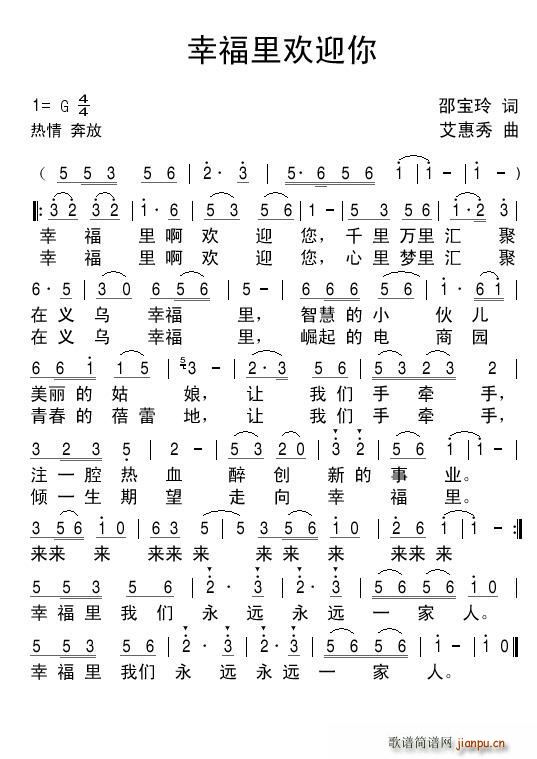 幸福里欢迎你
1= G 4/4 邵宝玲 词
热情 奔放 艾惠秀 曲
( 5 5 3 5 6 | 2· 3 | 5· 6 5 6 | 1 | 1 - | 1 - )
|: 3 2 3 2 | 1· 6 | 5 3 6 5 6 | 1 - | 5 5 6 5 6 | 1· 2 3 |
幸 福 里 啊 欢 迎 您, 千 里 万 里 汇 聚
幸 福 里 啊 欢 迎 您, 心 里 梦 里 汇 聚
6· 5 | 3 0 6 5 6 | 5 - | 5 5 6 2 6 | 1· 6 1 |
在 义 乌 幸福 里, 智慧 的 小 伙 儿
在 义 乌 幸福 里, 崛起 的 电 商 园
6 6 1 5 5 | 5 3 - | 2· 3 | 5 5 6 | 5 3 2 3 | 2 |
美丽 的 姑 娘, 让 我 们 手 牵 手,
青春 的 蓓 蕾 地, 让 我 们 手 牵 手,
3 2 3 5 | 2 - | 5 3 2 0 | 3 2 | 5 6 1 | 1 - |
注 一 腔 热 血 醉 创 新 的 事 业。
倾 一 生 期 望 走 向 幸 福 里。
3 5 6 | 1 0 | 6 3 5 | 5 3 5 6 | 1 0 | 2 6 1 | 1 - :|
来 来 来 来来 来 来 来 来 来来 来
5 5 3 5 6 | 2· 3 | 2· 3 | 5 6 5 6 | 1 0 |
幸 福 里 我 们 永 远 永 远 一 家 人。
5 5 3 5 6 | 2· 3 | 2· 3 | 5 6 5 | 1 - | 1 0 ‖
幸 福 里 我们 永 远 永 远 一 家 人。
歌谱简谱网
jianpu.cn